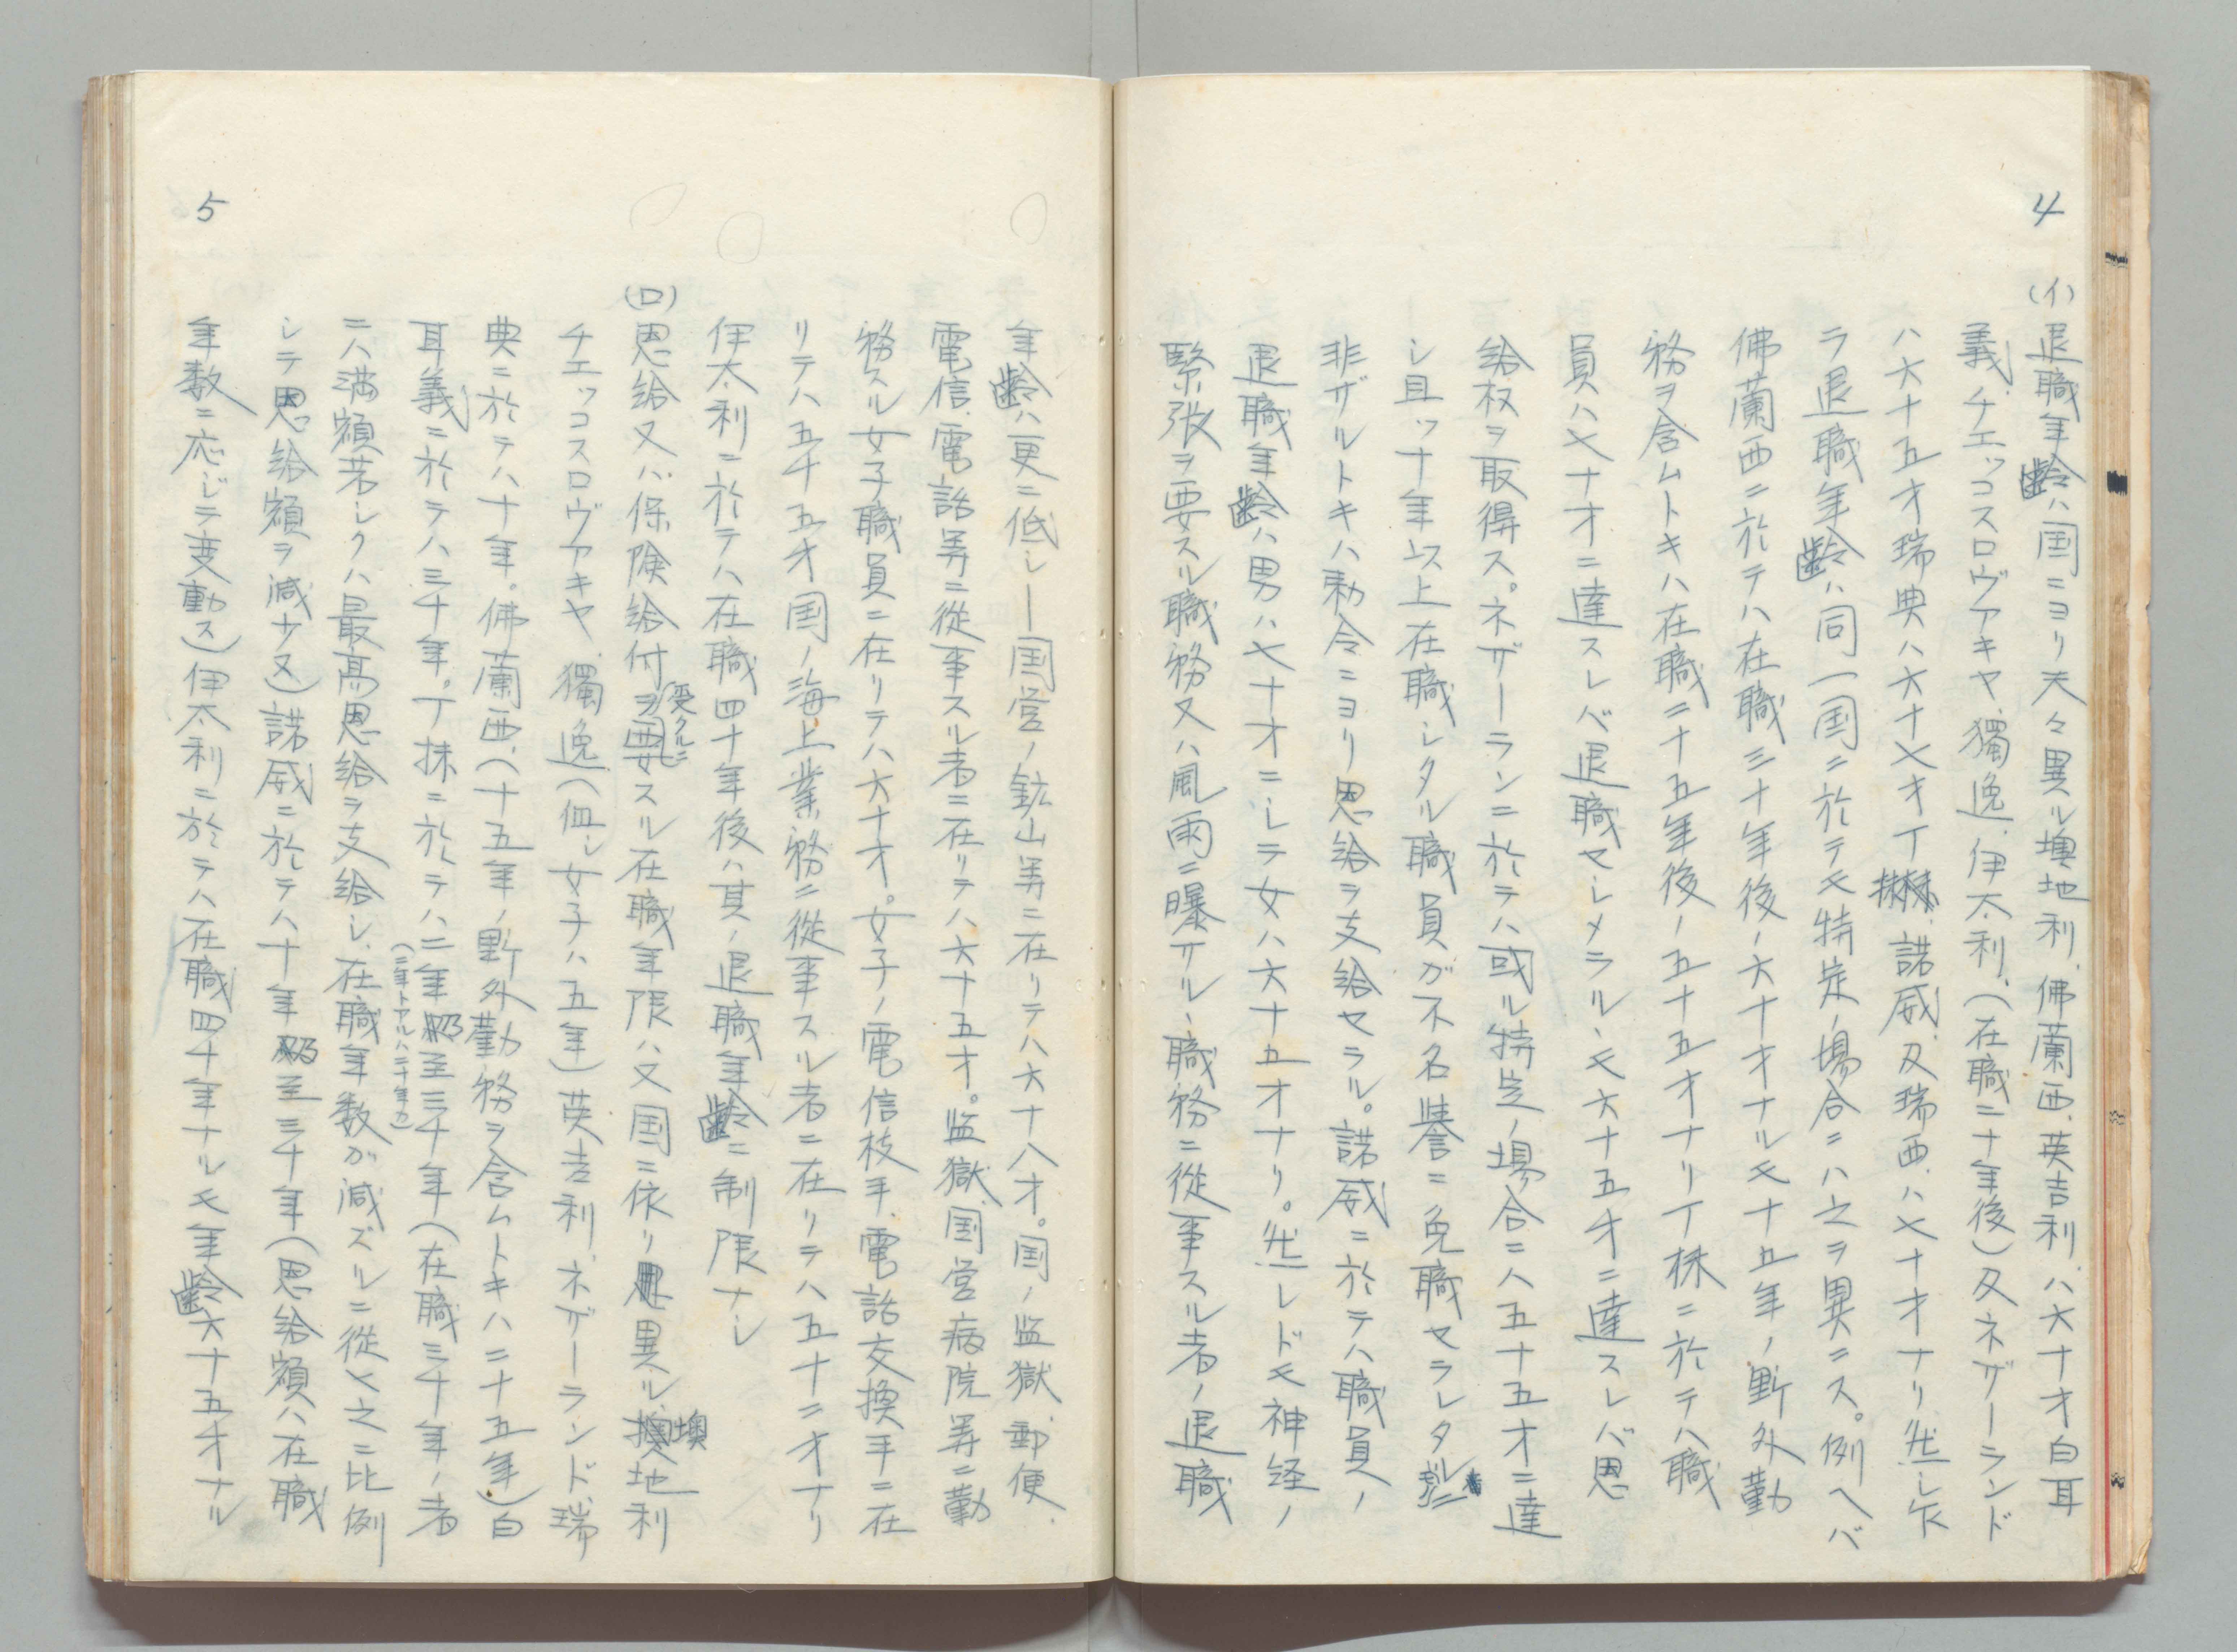 4
(イ)退職年齢ハ国ニヨリ夫々異ル墺地利、佛蘭西、英吉利、ハ六十才白耳
義、チエッコスロヴアキヤ、獨逸、伊太利、(在職二十年後)及ネザーランド
ハ六十五才瑞典ハ六十七才丁抹、諾威、及瑞西、ハ七十才ナリ然レ𪜈
ラ退職年齢ハ同一国ニ於テモ特定ノ場合ニハ之ヲ異ニス。例ヘバ
佛蘭西ニ於テハ在職三十年後ノ六十才ナルモ十五年ノ野外勤
務ヲ含ムトキハ在職二十五年後ノ五十五才ナリ丁抹ニ於テハ職
員ハ七十才ニ達スレバ退職セシメラルヽモ六十五才ニ達スレバ恩
給权ヲ取得ス。ネザーランニ於テハ或ル特定ノ場合ニハ五十五才ニ達
シ且ッ十年以上在職シタル職員ガ不名誉ニ免職セラレタル
非ザルトキハ勅令ニヨリ恩給ヲ支給セラル。諾威ニ於テハ職員ノ
退職年齢ハ男ハ七十才ニシテ女ハ六十五才ナリ。然レドモ神経ノ
緊張ヲ要スル職務又ハ風雨ニ曝サルヽ職務ニ從事スル者ノ退職
年齢ハ更ニ低シ―国営ノ鉱山等ニ在リテハ六十八才。国ノ监獄、郵便、
電信、電話等ニ從事スル者ニ在リテハ六十五才。监獄、国営病院等ニ勤
務スル女子職員ニ在リテハ六十才。女子ノ電信技手、電話交換手ニ在
リテハ五十五才国ノ海上業務ニ從事スル者ニ在リテハ五十二才ナリ
伊太利ニ於テハ在職四十年後ハ其ノ退職年齢ニ制限ナシ
(ロ)恩給又ハ保険給付ヲ受クルニ要スル在職年限ハ又国ニ依リ異ル、墺地利
チエッコスロヴアキヤ、獨逸(但シ女子ハ五年)英吉利、ネザーランド、瑞
典ニ於テハ十年。佛蘭西、(十五年ノ野外勤務ヲ含ムトキハ二十五年)白
耳義ニ於テハ三十年。丁抹ニ於テハ二年乃至三十年(在職三十年ノ者
(二年トアルハ二十年カ)
ニハ満額若シクハ最高恩給ヲ支給シ、在職年数ガ減ズルニ從ヒ之ニ比例
シテ恩給額ヲ減少ス)諾威ニ於テハ十年乃至三十年(恩給額ハ在職
年数ニ応ジテ変動ス)伊太利ニ於テハ在職四十年ナルモ年齢六十五才ナル
5